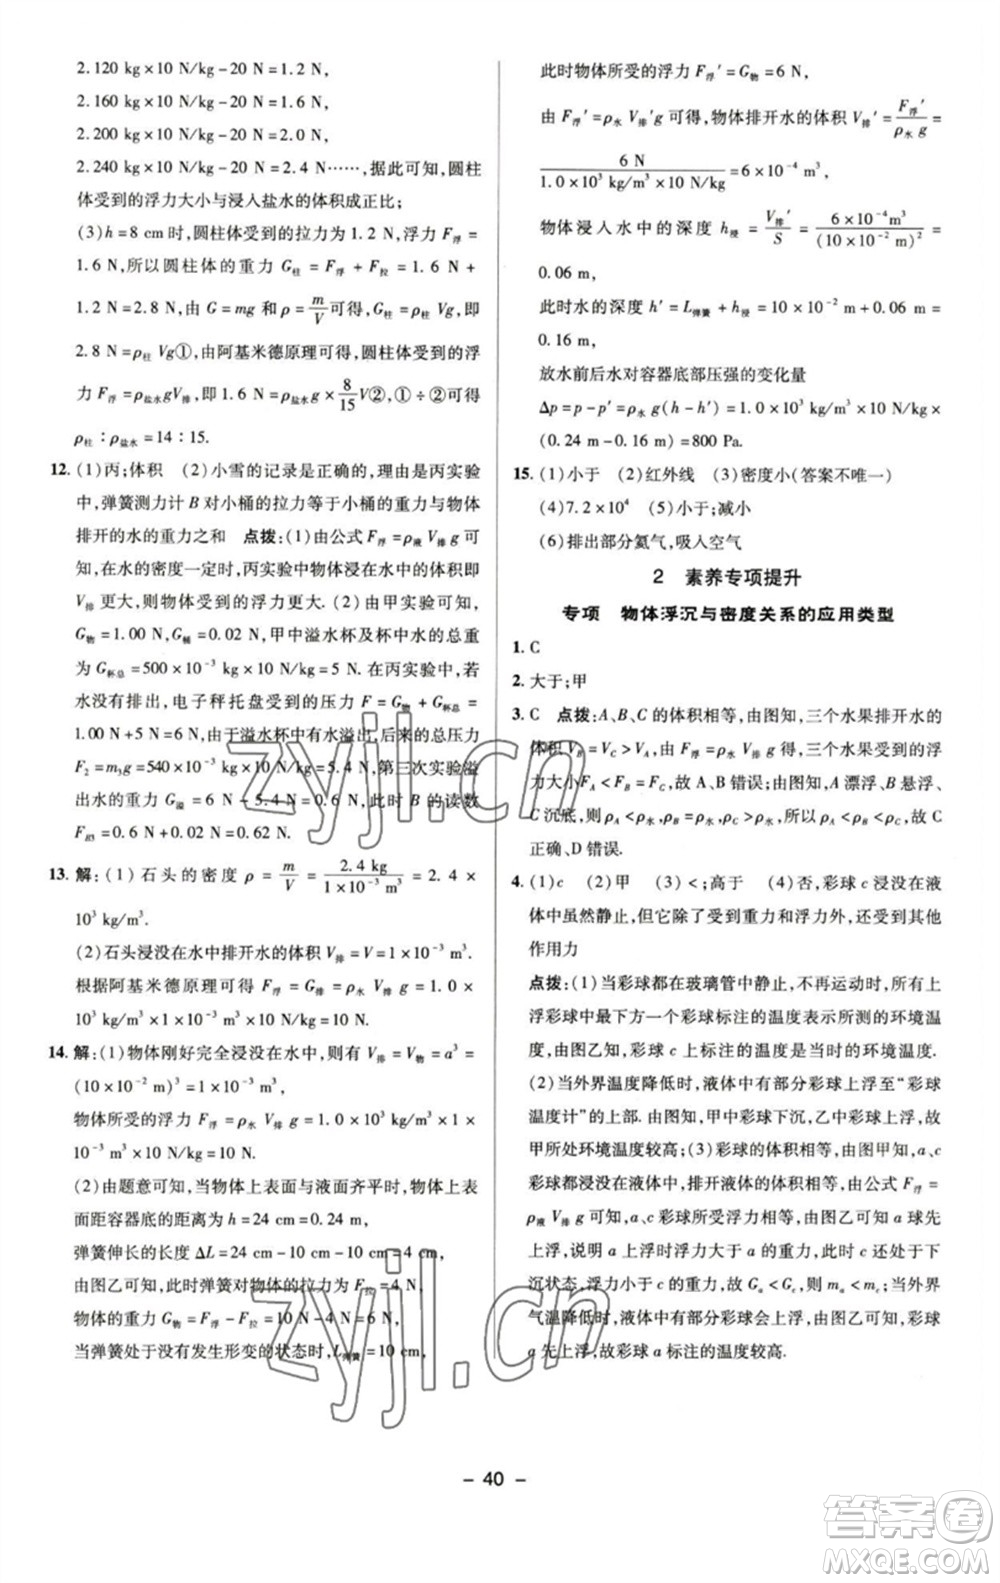 2.120 kg×10 N/kg-20 N=1.2 N,
2.160 kg×10 N/kg-20 N=1.6 N,
2.200 kg×10 N/kg-20 N=2.0 N,
2.240 kg×10 N/kg-20 N=2.4 N……,据此可知,圆柱
体受到的浮力大小与浸入盐水的体积成正比;
(3)h=8 cm时,圆柱体受到的拉力为1.2 N,浮力F浮=
1.6 N,所以圆柱体的重力G柱=F浮+F拉=1.6 N+
1.2 N=2.8 N,由G=mg和ρ=m/V可得,G柱=ρ柱Vg,即
2.8 N=ρ柱Vg①,由阿基米德原理可得,圆柱体受到的浮
力F浮=ρ盐水gV排,即1.6 N=ρ盐水g×8/15V②,①÷②可得
ρ柱:ρ盐水=14:15.
12. (1)丙;体积 (2)小雪的记录是正确的,理由是丙实验
中,弹簧测力计B对小桶的拉力等于小桶的重力与物体
排开的水的重力之和 点拨:(1)由公式F浮=ρ液V排g可
知,在水的密度一定时,丙实验中物体浸在水中的体积即
V排更大,则物体受到的浮力更大.(2)由甲实验可知,
G物=1.00 N,G桶=0.02 N,甲中溢水杯及杯中水的总重
为G杯总=500×10⁻³ kg×10 N/kg=5 N.在丙实验中,若
水没有排出,电子秤托盘受到的压力F=G物+G杯总=
1.00 N+5 N=6 N,由于溢水杯中水溢出,后来的总压力
F₂=m₃g=540×10⁻³ kg×10 N/kg=5.4 N,第三次实验溢
出水的重力G溢=6 N-5.4 N=0.6 N,此时B的读数
F_B3=0.6 N+0.02 N=0.62 N.
13. 解:(1)石头的密度ρ=m/V=2.4 kg/(1×10⁻³ m³)=2.4×
10³ kg/m³.
(2)石头浸没在水中排开水的体积V排=V=1×10⁻³ m³.
根据阿基米德原理可得,F浮=G排=ρ水V排g=1.0×
10³ kg/m³×1×10⁻³ m³×10 N/kg=10 N.
14. 解:(1)物体刚好完全浸没在水中,则有V排=V物=a³=
(10×10⁻² m)³=1×10⁻³ m³,
物体所受的浮力F浮=ρ水V排g=1.0×10³ kg/m³×1×
10⁻³ m³×10 N/kg=10 N.
(2)由题意可知,当物体上表面与液面齐平时,物体上表
面距容器底的距离为h=24 cm=0.24 m,
弹簧伸长的长度ΔL=24 cm-10 cm-10 cm=4 cm,
由图乙可知,此时弹簧对物体的拉力为F拉=4 N,
物体的重力G物=F浮-F拉=10 N-4 N=6 N,
当弹簧处于没有发生形变的状态时,L弹簧=10 cm,
此时物体所受的浮力F浮′=G物=6 N,
由F浮′=ρ水V排′g可得,物体排开水的体积V排′=F浮′/(ρ水g)=
6 N/(1.0×10³ kg/m³×10 N/kg)=6×10⁻⁴ m³,
物体浸入水中的深度h浸=V排′/S=6×10⁻⁴m³/(10×10⁻² m)²=
0.06 m,
此时水的深度h′=L弹簧+h浸=10×10⁻² m+0.06 m=
0.16 m,
放水前后水对容器底部压强的变化量
Δp=p-p′=ρ水g(h-h′)=1.0×10³ kg/m³×10 N/kg×
(0.24 m-0.16 m)=800 Pa.
15. (1)小于 (2)红外线 (3)密度小(答案不唯一)
(4)7.2×10⁴ (5)小于;减小
(6)排出部分氦气,吸入空气
2 素养专项提升
专项 物体浮沉与密度关系的应用类型
1. C
2. 大于;甲
3. C 点拨:A、B、C的体积相等,由图知,三个水果排开水的
体积V_B=V_C>V_A,由F浮=ρ水V排g得,三个水果受到的浮
力大小F_A<F_B=F_C,故A、B错误;由图知,A漂浮,B悬浮,
C沉底,则ρ_A<ρ水,ρ_B=ρ水,ρ_C>ρ水,所以ρ_A<ρ_B<ρ_C,故C
正确、D错误.
4. (1)c (2)甲 (3)<;高于 (4)否,彩球c浸没在液
体中虽然静止,但它除了受到重力和浮力外,还受到其他
作用力
点拨:(1)当彩球都在玻璃管中静止、不再运动时,所有上
浮彩球中最下面一个彩球标注的温度表示所测的环境温
度,由图乙知,彩球c上标注的温度是当时的环境温度.
(2)当外界温度降低时,液体中有部分彩球上浮至“彩球
温度计”的上部.由图知,甲中彩球下沉,乙中彩球上浮,故
甲所处环境温度较高;(3)彩球的体积相等,由图甲知,a、c
彩球浸没在液体中,排开液体的体积相等,由公式F浮=
ρ液V排g可知,a、c彩球所受浮力相等,由图乙知,a球先
上浮,说明浮力大于a的重力,此时c还处于下
沉状态,浮力小于c的重力,故G_a<G_c,则m_a<m_c;当外界
气温降低时,液体中有部分彩球会上浮,由图乙知,a球先
上浮,故彩球a标注的温度较高.
- 40 -
zyjl.cn
zyjl.cn
答案圈
MXQE.COM